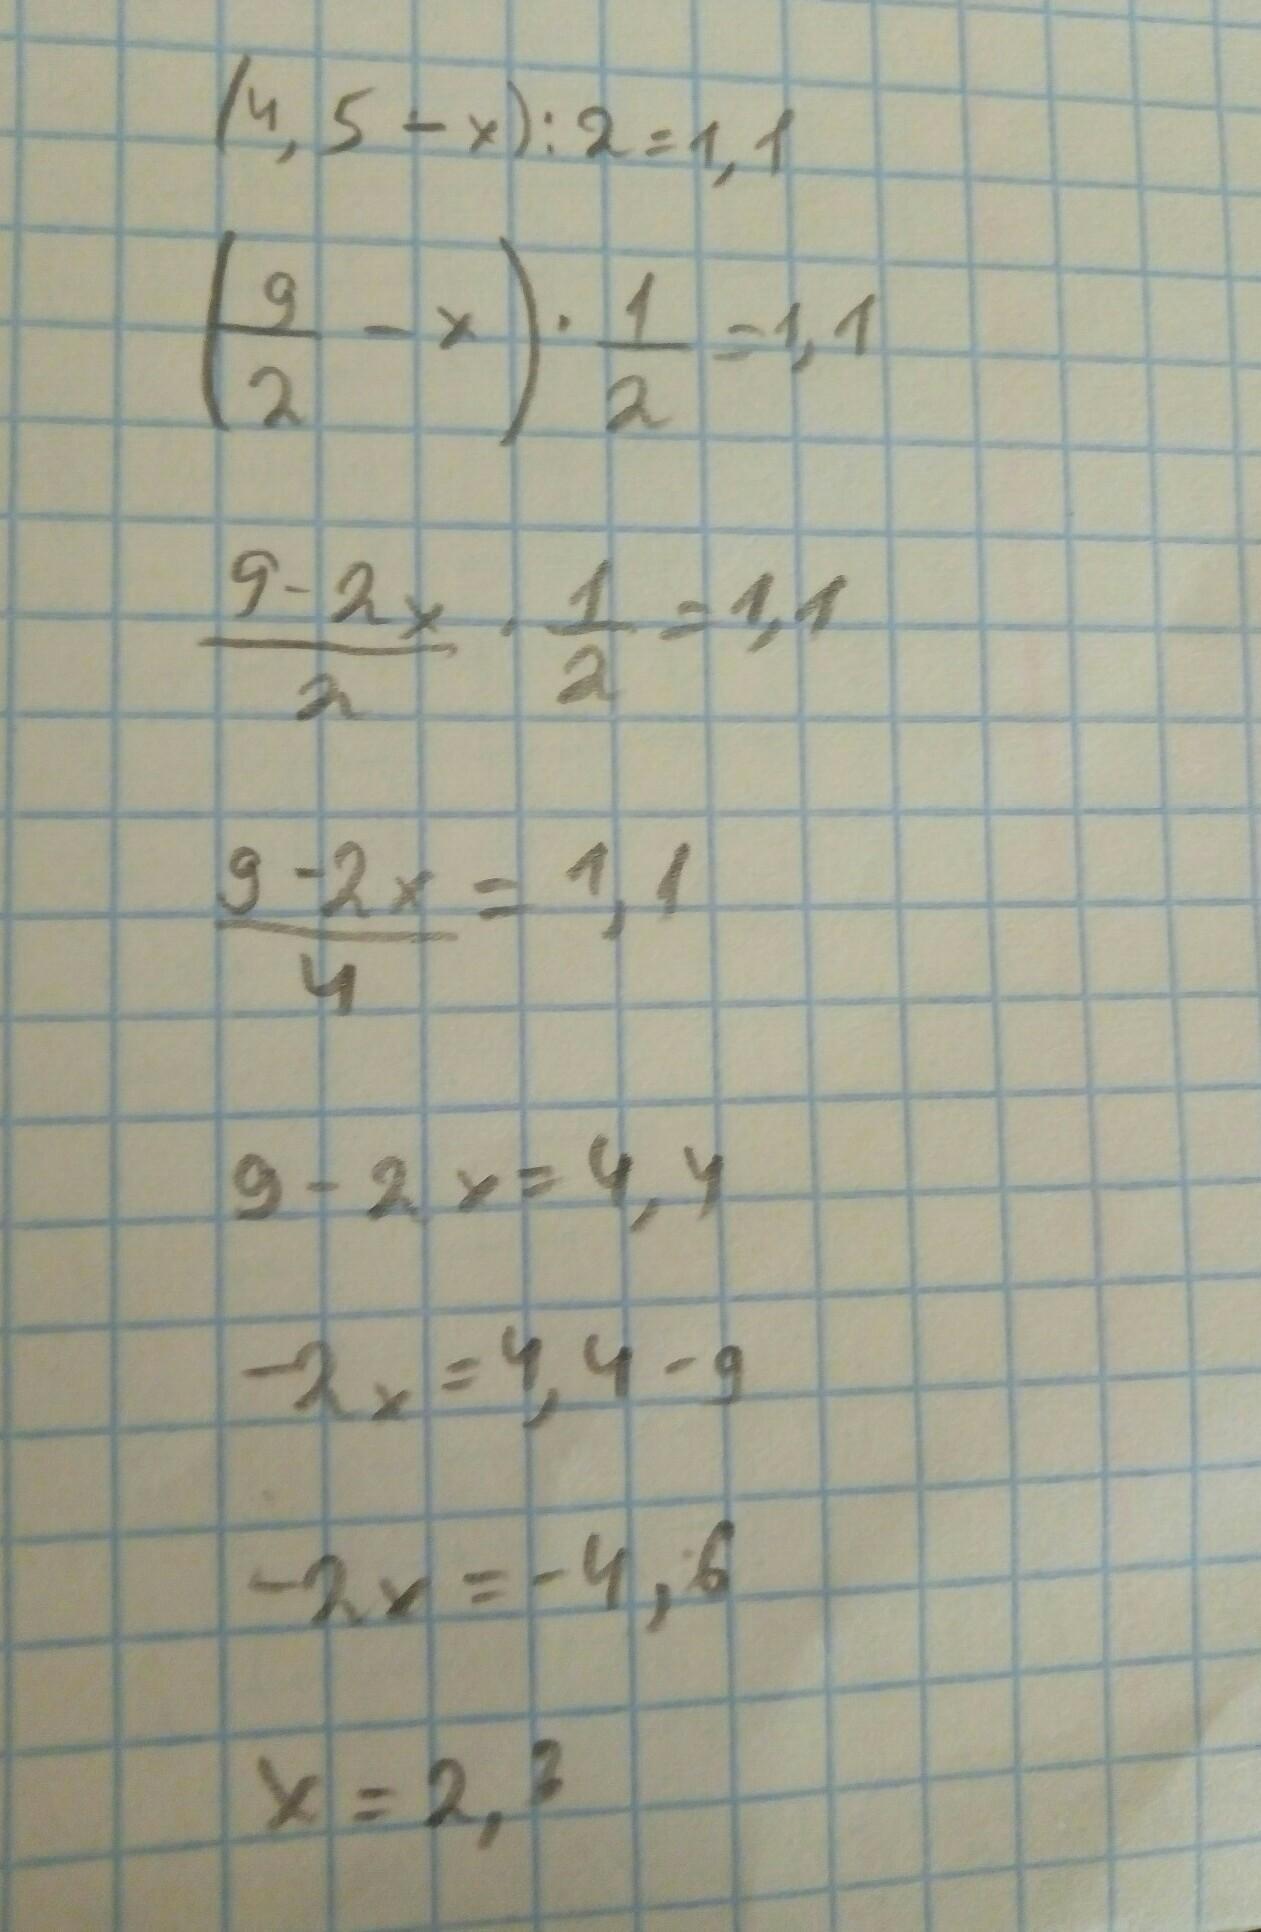 (4,5 - x) : 2 = 1,1
(9/2 - x) · 1/2 = 1,1
9 - 2x/2 · 1/2 = 1,1
9 - 2x/4 = 1,1
9 - 2x = 4,4
-2x = 4,4 - 9
-2x = -4,6
x = 2,3